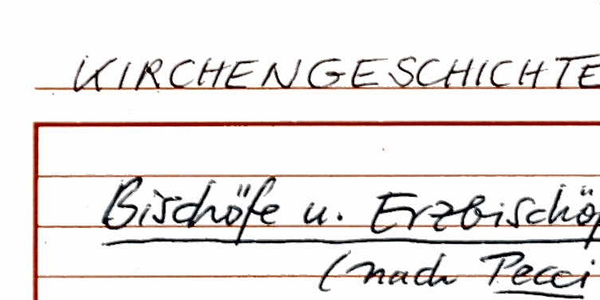 KIRCHENGESCHICHTE
Bischöfe u. Erzbischöf
(nach Pecci